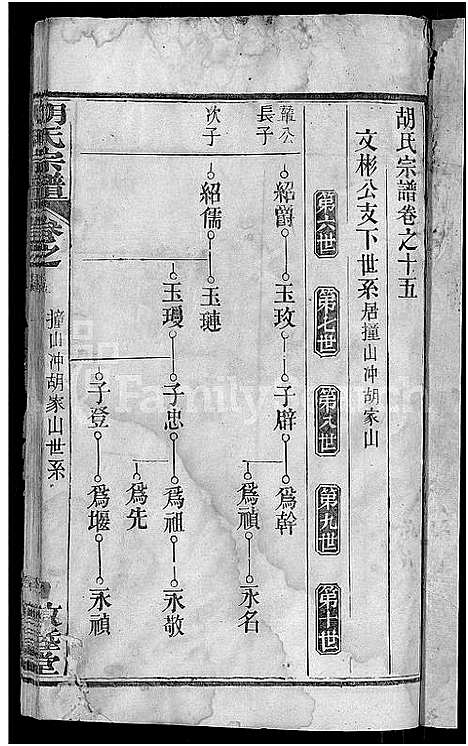 胡氏宗譜卷之十五
文彬公支下世系居撞山冲胡家山
第六世
第七世
第八世
第九世
第十世
華公
長子
紹爵
玉玫
子辟
爲幹
爲禎
永名
次子
紹儒
玉璉
玉瓊
子忠
爲祖
永敬
爲先
子登
爲堰
永禎
胡氏宗譜
卷之
撞山冲胡家山世系
敦睦堂
FamilySearch